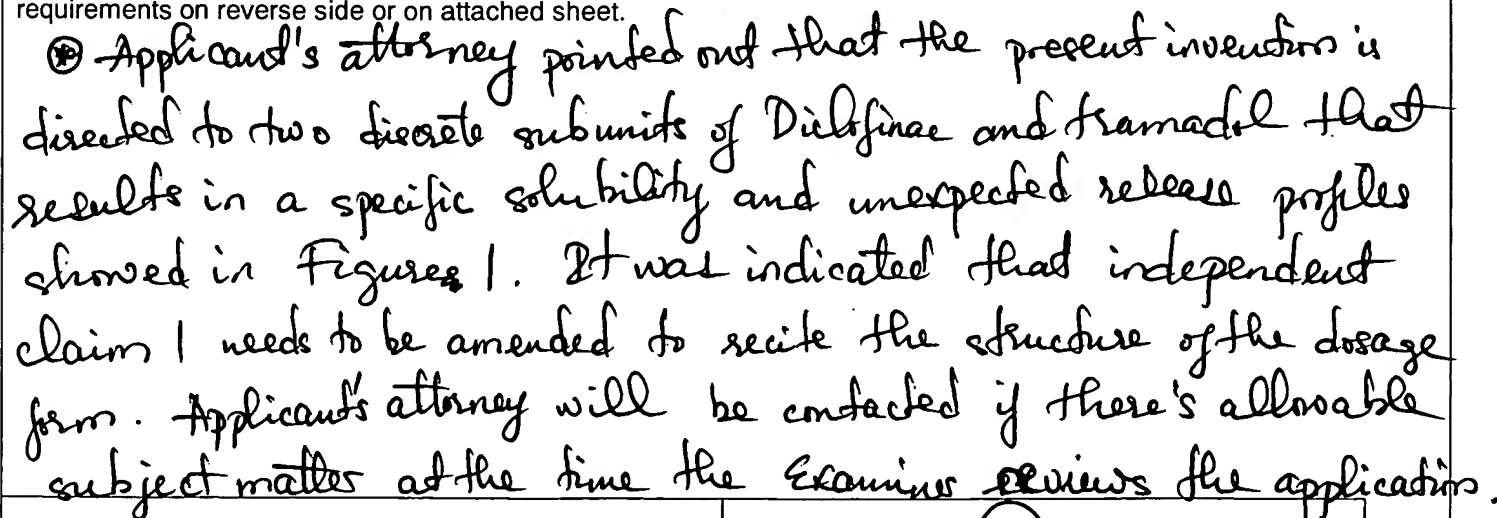 requirements on reverse side or on attached sheet.
⊛ Applicant's attorney pointed out that the present invention is
directed to two discrete subunits of Diclofinac and tramadol that
results in a specific solubility and unexpected release profiles
showed in Figures 1. It was indicated that independent
claim 1 needs to be amended to recite the structure of the dosage
form. Applicant's attorney will be contacted if there's allowable
subject matter at the time the Examiner reviews the application.